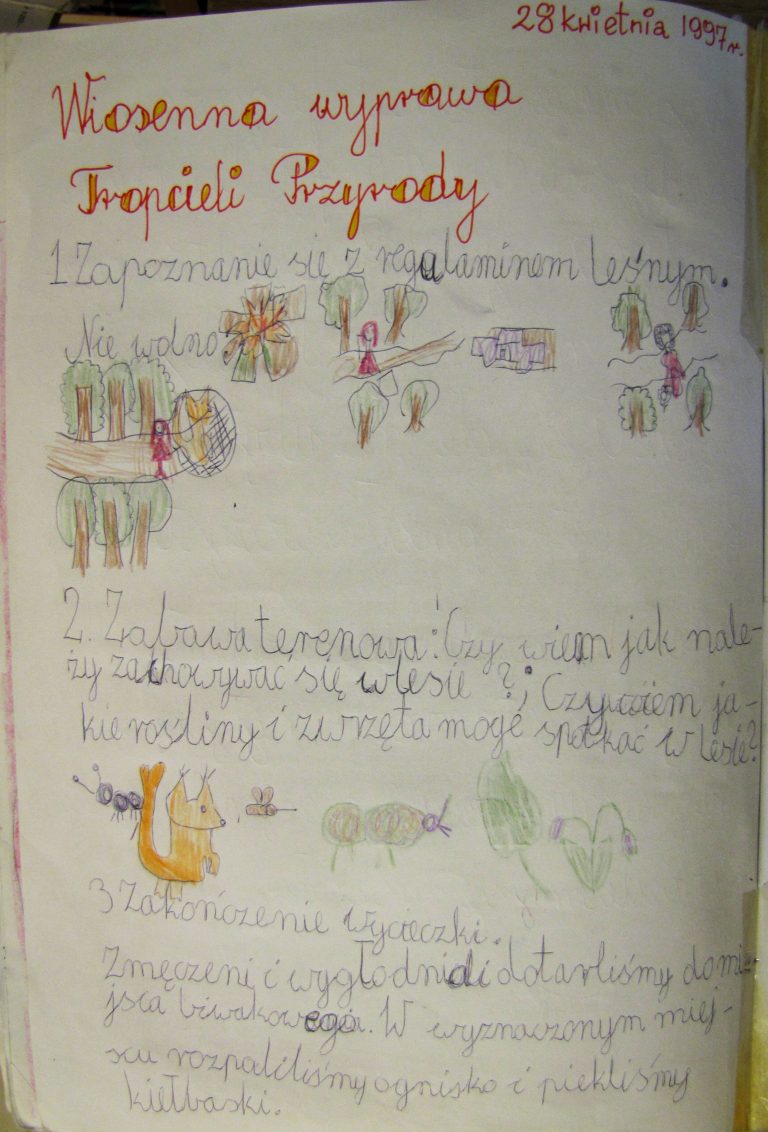 28 kwietnia 1997r.
Wiosenna wyprawa
Tropicieli Przyrody
1 Zapoznanie się z regulaminem leśnym.
Nie wolno
2. Zabawa terenowa: Czy wiem jak nale-
ży zachowywać się w lesie?; Czy wiem ja-
kie rośliny i zwierzęta mogę spotkać w lesie?
3 Zakończenie wycieczki.
Zmęczeni i wygłodniali dotarliśmy do mi-
jsca biwakowego. W wyznaczonym miej-
scu rozpaliliśmy ognisko i piekliśmy
kiełbaski.